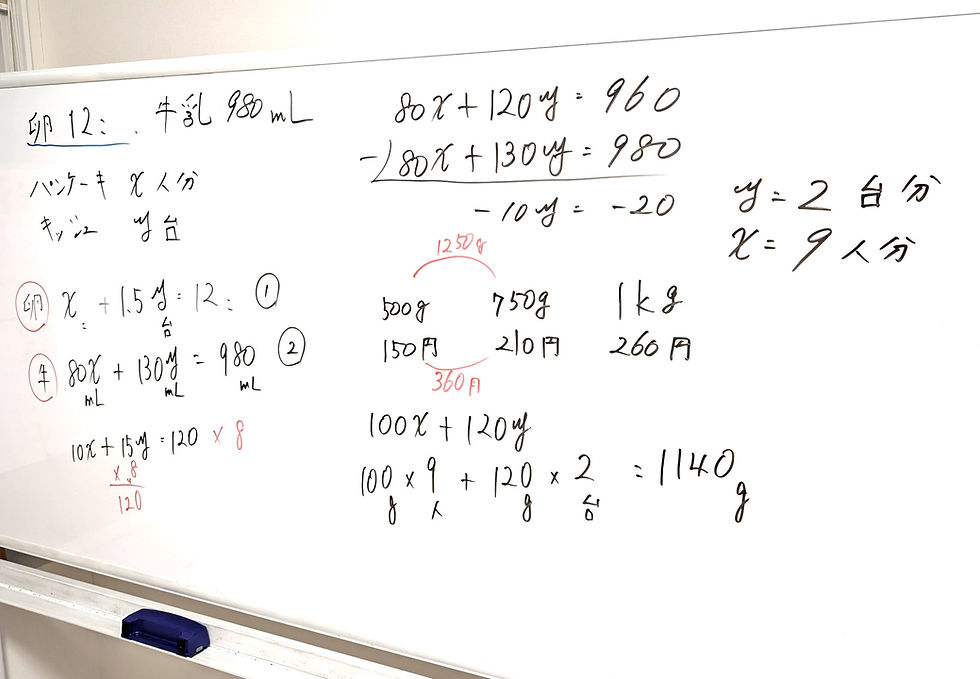 卵 12コ 牛乳 980mL
パンケーキ x 人分
キッシュ y 台
卵 xコ + 1.5y台 = 12コ ①
牛 80x mL + 130y mL = 980 mL ②
10x + 15y = 120 × 8
× 8
120
80x + 120y = 960
-) 80x + 130y = 980
-10y = -20
y = 2 台分
x = 9 人分
1250g
500g 750g 1kg
150円 210円 260円
360円
100x + 120y
100g × 9人 + 120g × 2台 = 1140g